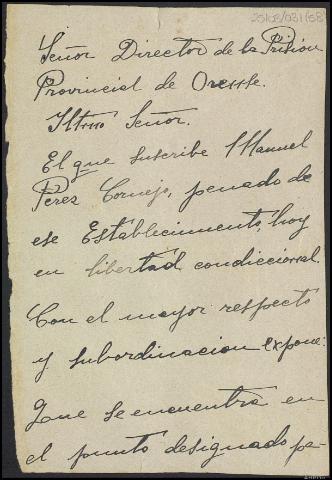 Señor Director de la Prision
Provincial de Orense.
Iltmo Señor.
El que suscribe Manuel
Perez Cornejo, penado de
ese Establecimiento, hoy
en libertad condiccional.
Con el mayor respecto
y subordinacion expone:
Que se encuentra en
el punto designado pa-